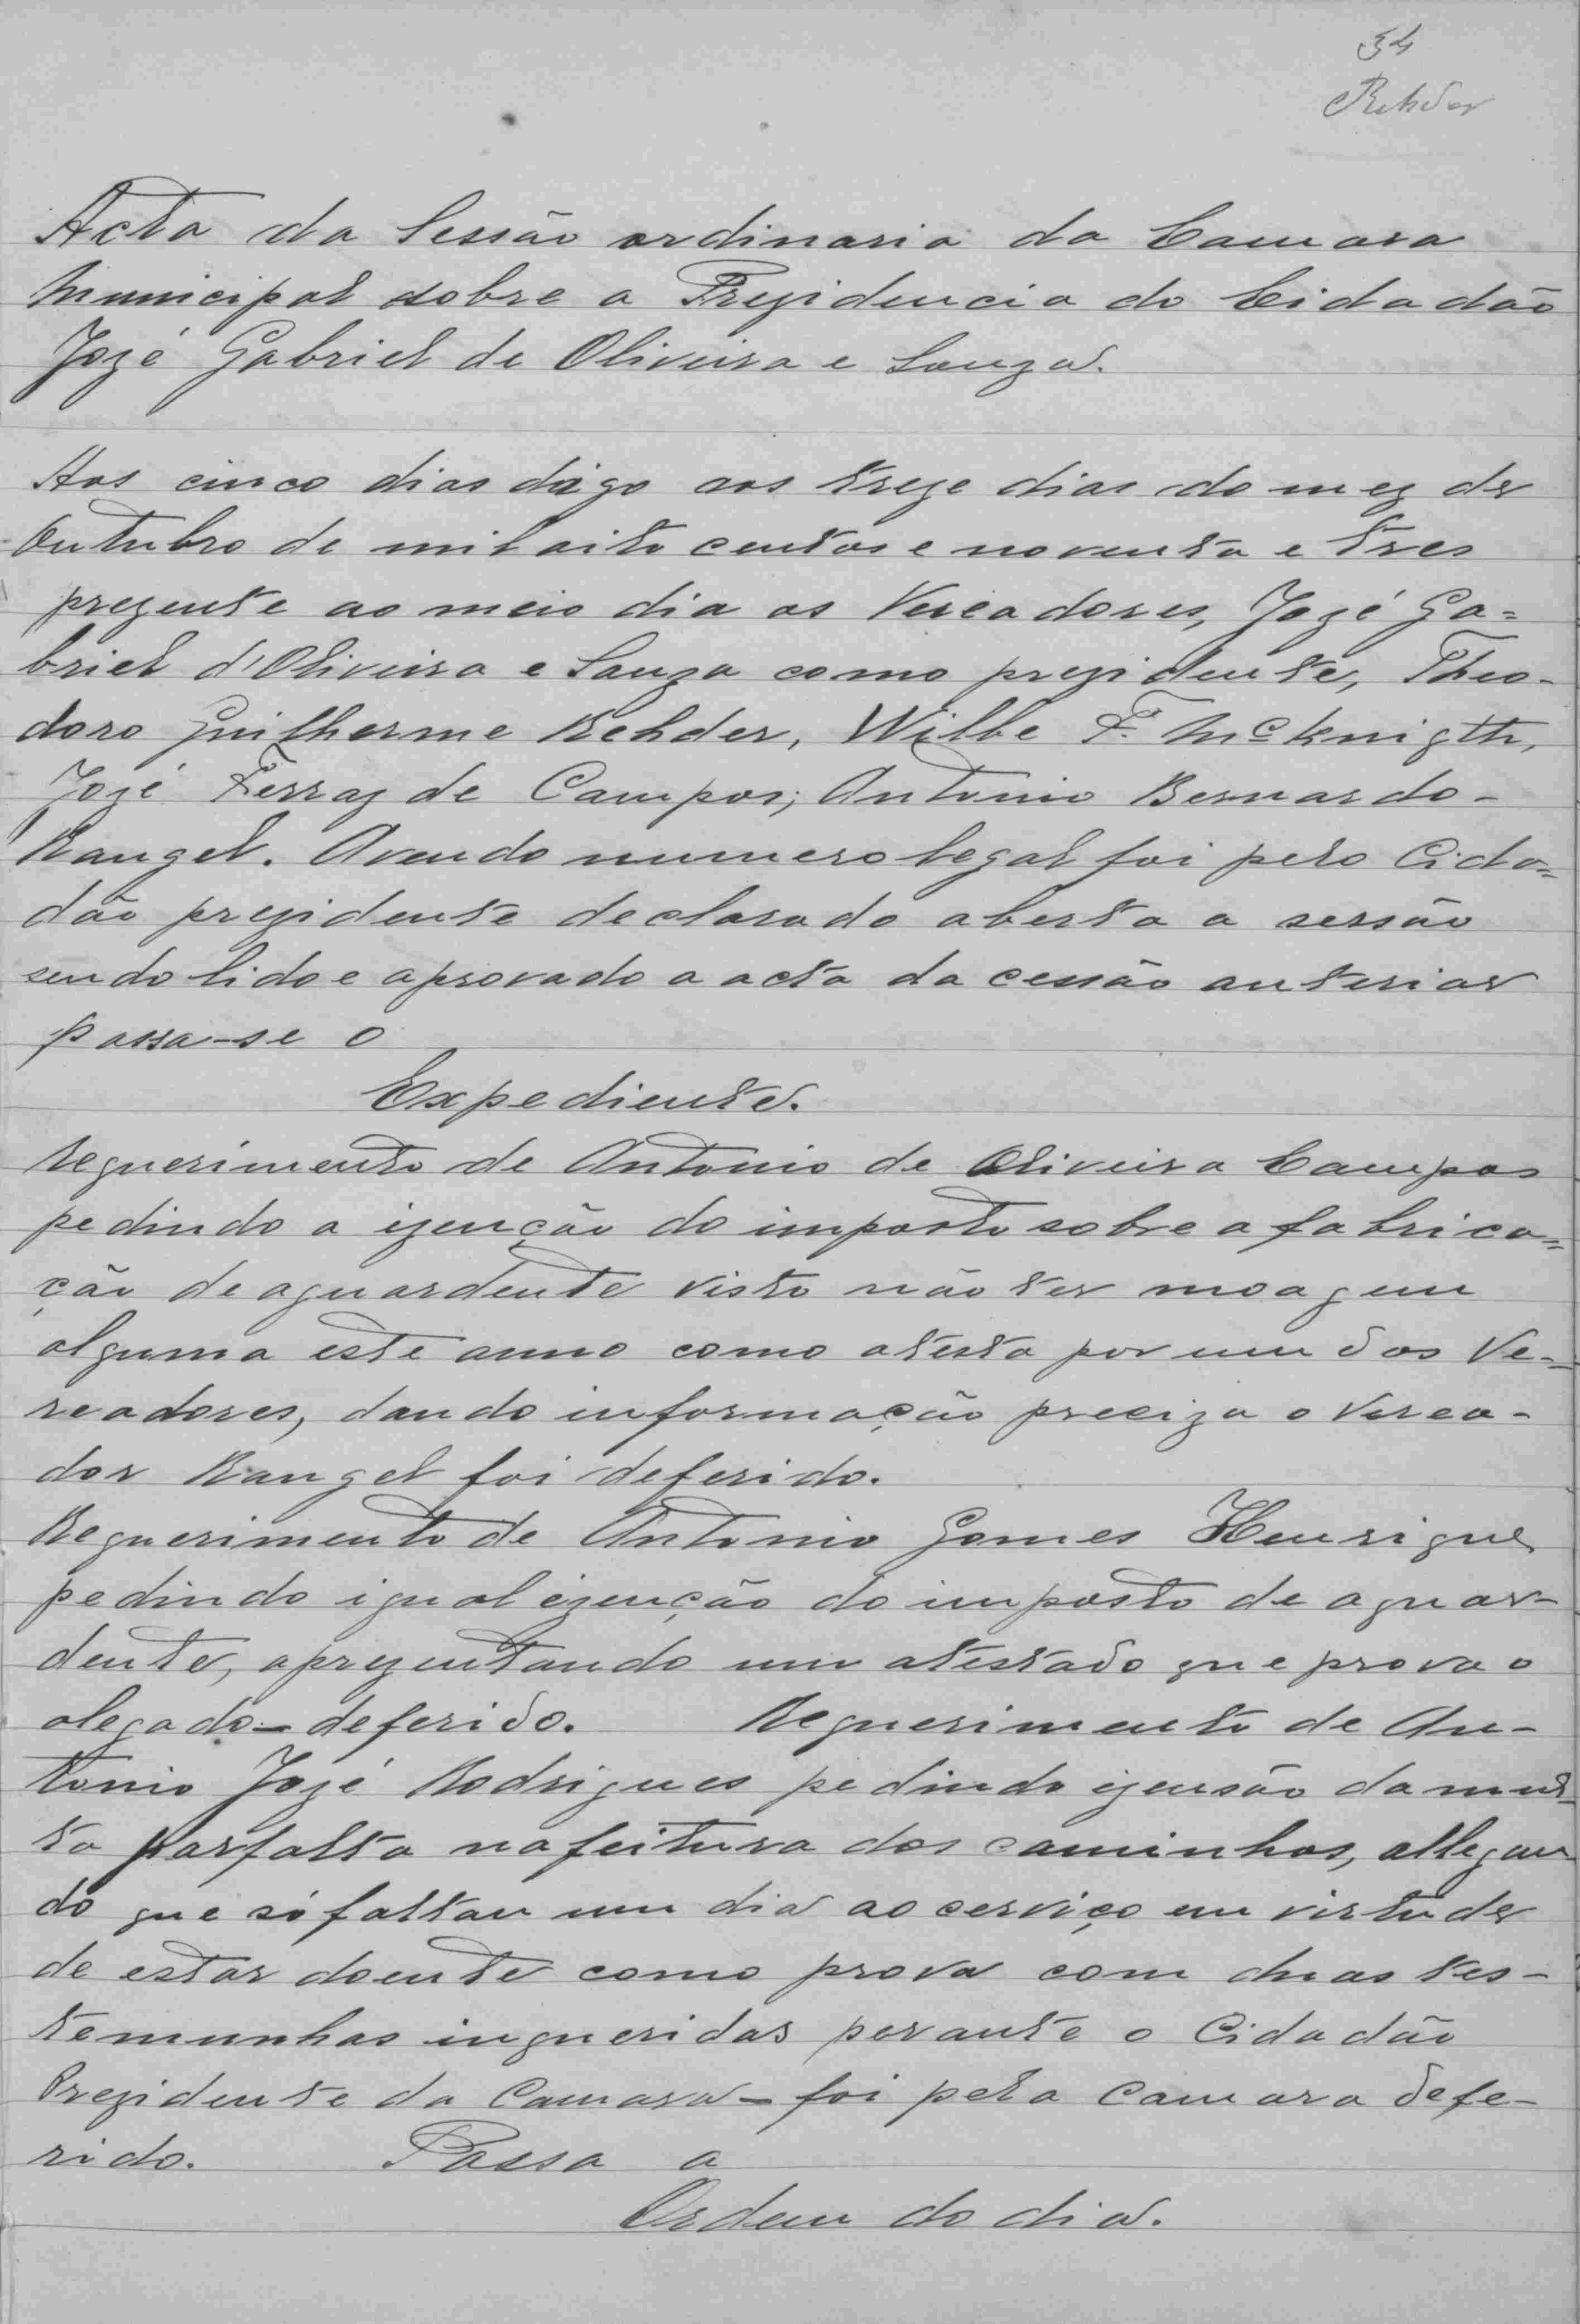 54
Rehder
Acta da Sessão ordinaria da Camara
Municipal sobre a Prezidencia do Cidadão
Jozé Gabriel de Oliveira e Souza.
Aos cinco dias digo aos treze dias do mez de
Outubro de mil oito centos e noventa e tres
prezente ao meio dia os Vereadores, Jozé Ga=
briel d'Oliveira e Souza como prezidente, Theo-
doro Guilherme Rehder, Wilbe F. McKnigth,
Jozé Ferraz de Campos, Antonio Bernardo-
Rangel. Avendo numero legal foi pelo Cida=
dão prezidente declarado aberta a sessão
sendo lido e aprovado a acta da cessão anterior
passa-se o
Expediente.
Requerimento de Antonio de Oliveira Campos
pedindo a izenção do imposto sobre a fabrica=
ção de aguardente visto não ter moagem
alguma este anno como atesta por um dos Ve=
readores, dando informação preciza o Verea-
dor Rangel foi deferido.
Requerimento de Antonio Gomes Henrique
pedindo igual izenção do imposto de aguar-
dente, aprezentando um atestado que prova o
alegado - deferido. Requerimento de An-
tonio Jozé Rodrigues pedindo izensão da mul-
ta por falta na feitura dos caminhos, allegan
do que só faltau um dia ao cerviço em virtude
de estar doente como prova com duas tes-
temunhas inqueridas perante o Cidadão
Prezidente da Camara - foi pela Camara defe-
rido. Passa a
Ordem do dia.